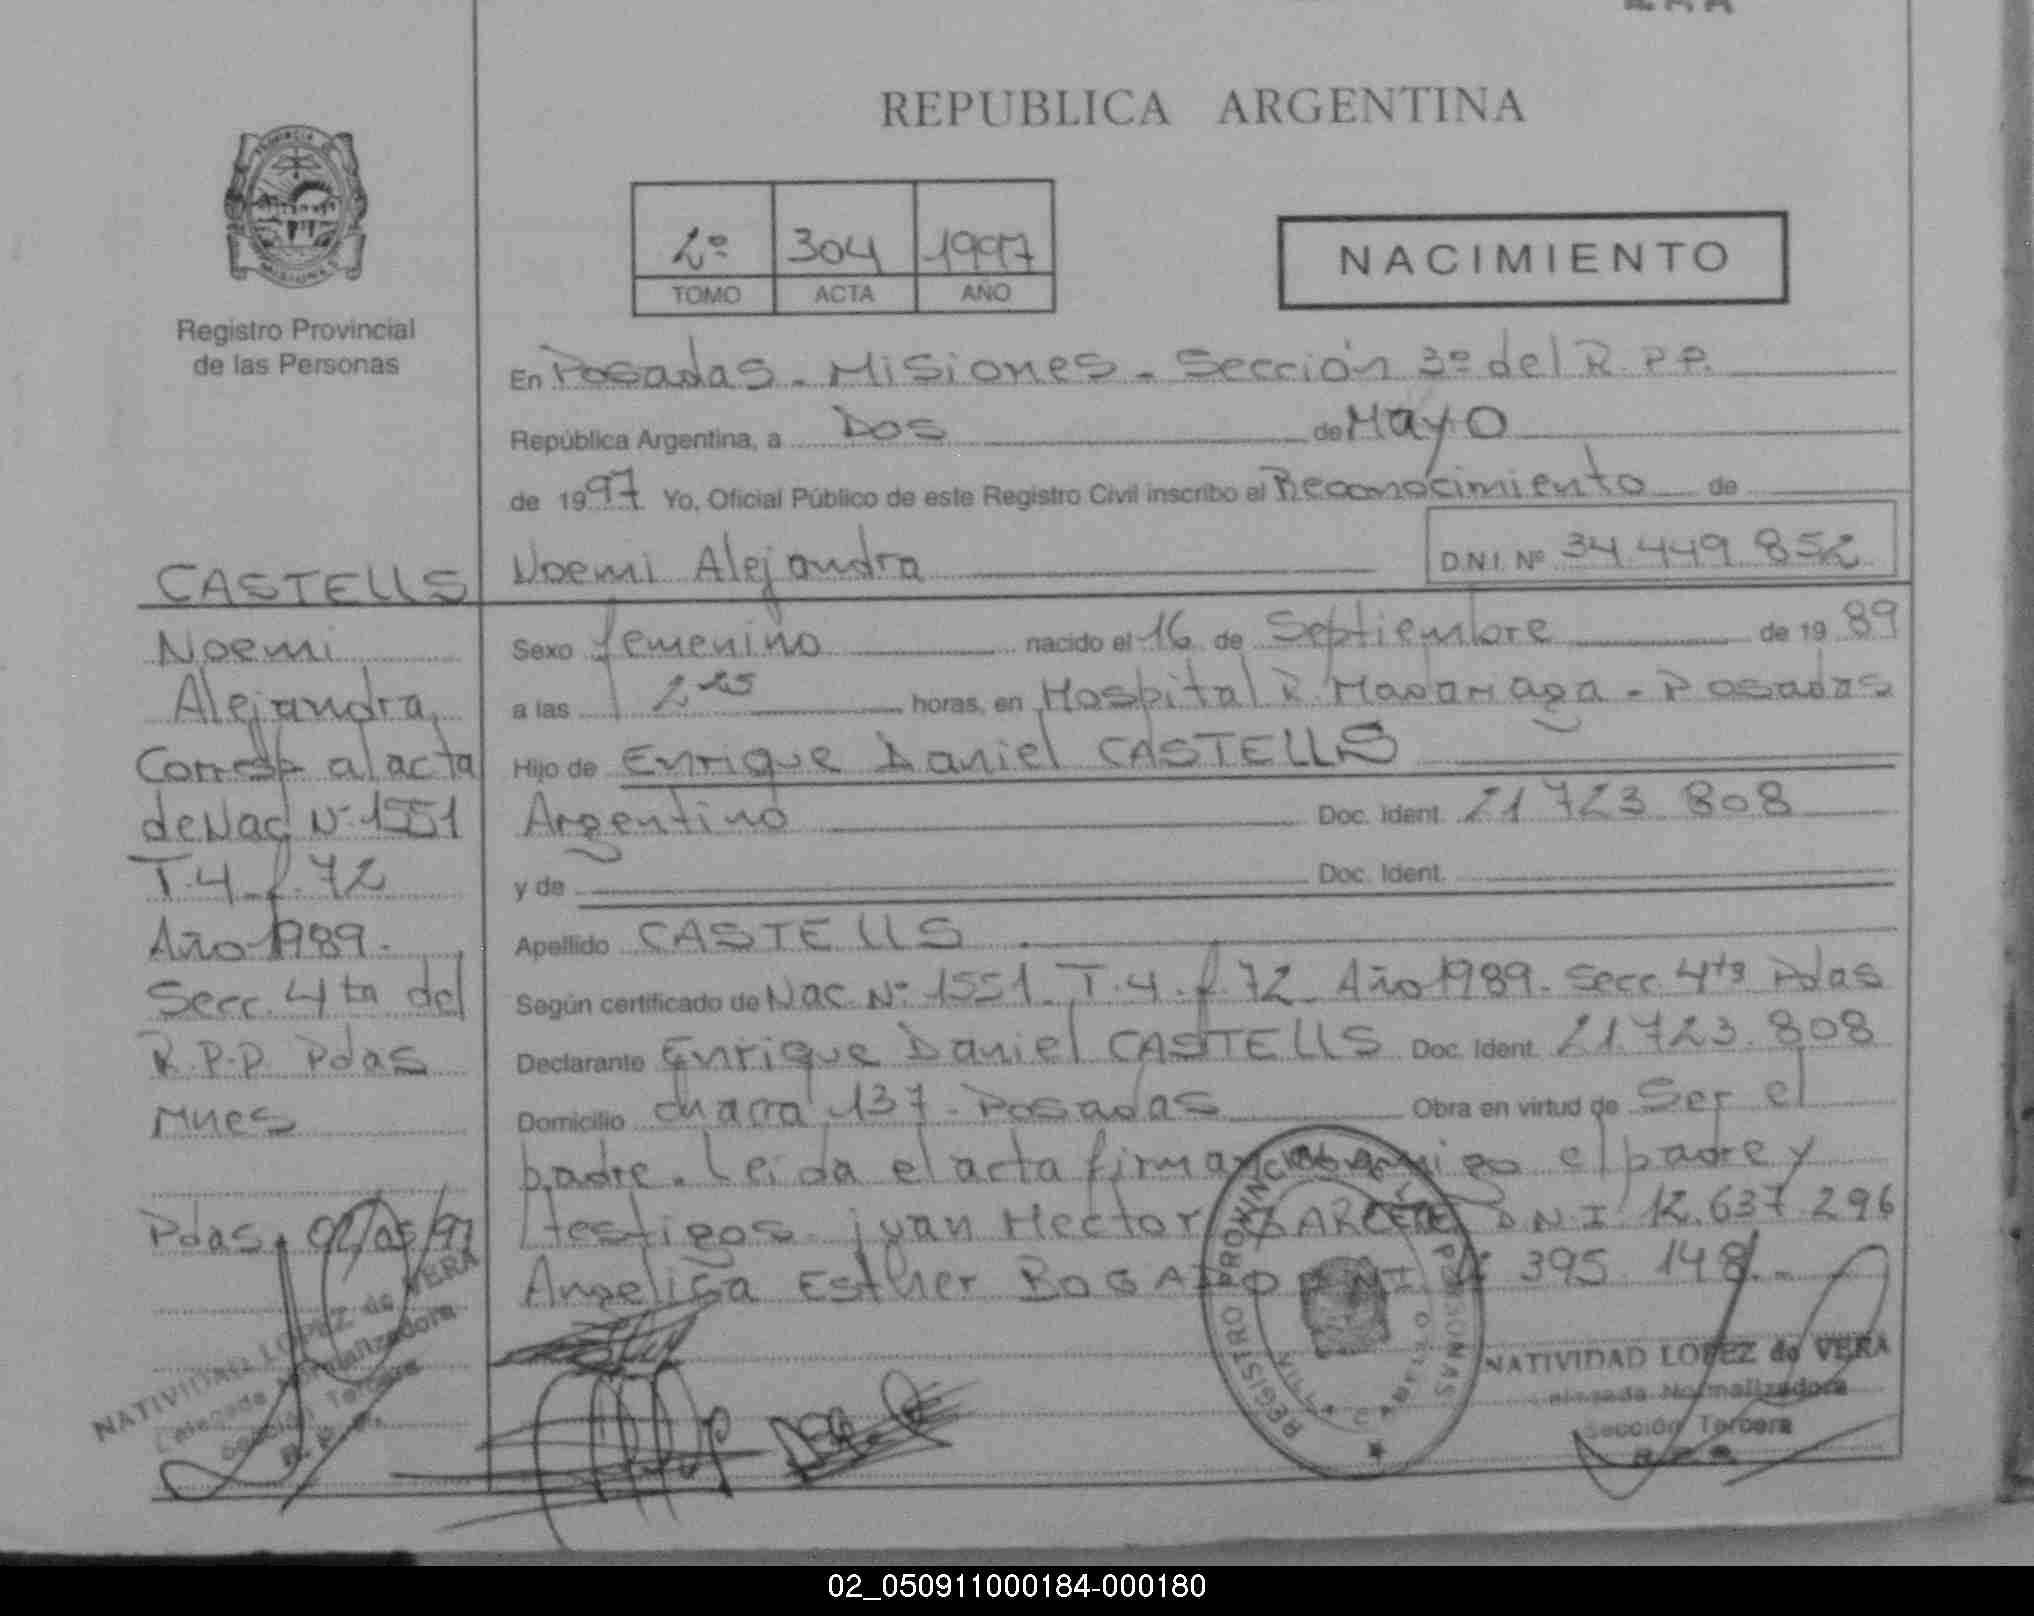 REPUBLICA ARGENTINA
2º 304 1997
TOMO ACTA AÑO
NACIMIENTO
Registro Provincial
de las Personas
En Posadas - Misiones - Sección 3º del R.P.P.
República Argentina, a Dos de Mayo
de 1997 Yo, Oficial Público de este Registro Civil inscribo el Reconocimiento de
Noemi Alejandra D.N.I. Nº 34.449.852
Sexo femenino nacido el 16 de Septiembre de 1989
a las 2 25 horas, en Hospital R. Madariaga - Posadas
Hijo de Enrique Daniel CASTELLS
Argentino Doc. Ident. 21.723.808
y de Doc. Ident.
Apellido CASTELLS
Según certificado de Nac. Nº 1551 T.4. f.72 Año 1989. Secc 4ta Pdas
Declarante Enrique Daniel CASTELLS Doc. Ident. 21.723.808
Domicilio chacra 137 - Posadas Obra en virtud de Ser el
padre. Leida el acta firman el padre y
testigos juan Hector D.N.I 12.637.296
Angelica Esther 395.148.-
CASTELLS
Noemi
Alejandra
Corresp al acta
de Nac Nº 1551
T.4 f.72
Año 1989.
Secc. 4ta del
R.P.P. Pdas
Mnes
Pdas. 02/05/97
NATIVIDAD LOPEZ de VERA
Delegada Normalizadora
Sección Tercera
R.P.P.
REGISTRO PROVINCIAL DE LAS PERSONAS
NATIVIDAD LOPEZ de VERA
Delegada Normalizadora
Sección Tercera
R.P.P.
02_050911000184-000180